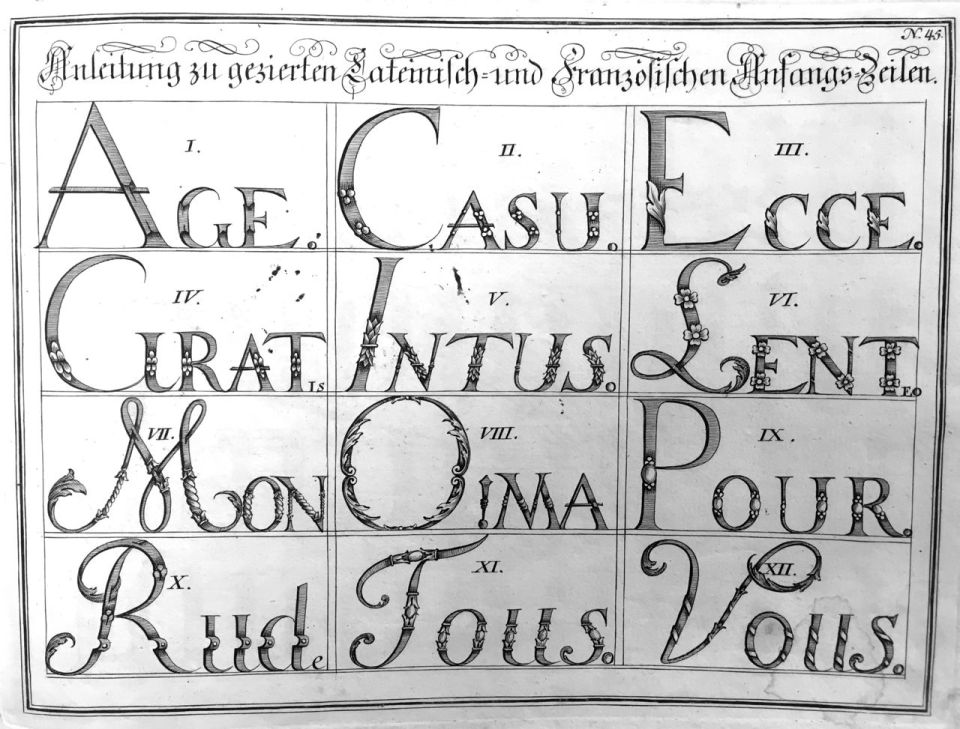 N. 45.
Anleitung zu gezierten Lateinisch- und Französischen Anfangs-Zeilen.
I.
AGE.
II.
CASU.
III.
ECCE.
IV.
CURAT Is
V.
INTUS.
VI.
LENT EO
VII.
MON
VIII.
O! MA
IX.
POUR.
X.
Rude
XI.
Tous.
XII.
Vous.